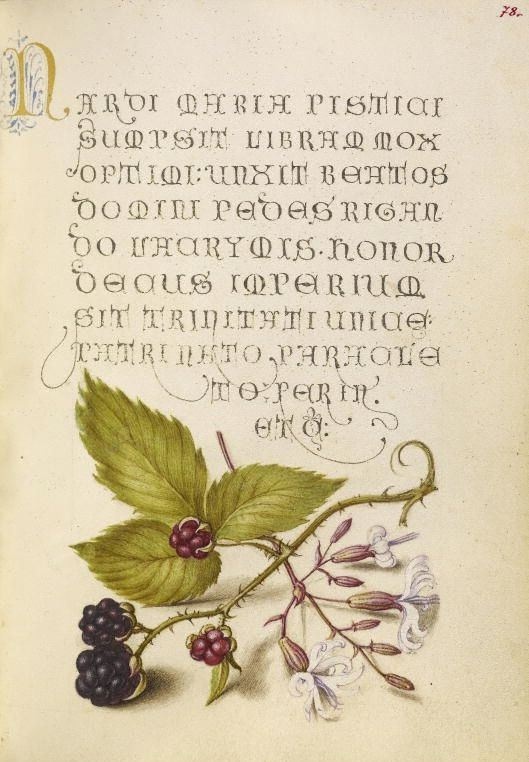 78.
NARDI MARIA PISTICI
SUMPSIT LIBRAM MOX
OPTIMI: UNXIT BEATOS
DOMINI PEDES RIGAN
DO LACRYMIS. HONOR
DECUS IMPERIUM
SIT TRINITATI UNICE
PATRI NATO PARACLE
TO. PER IN.
ET Q: